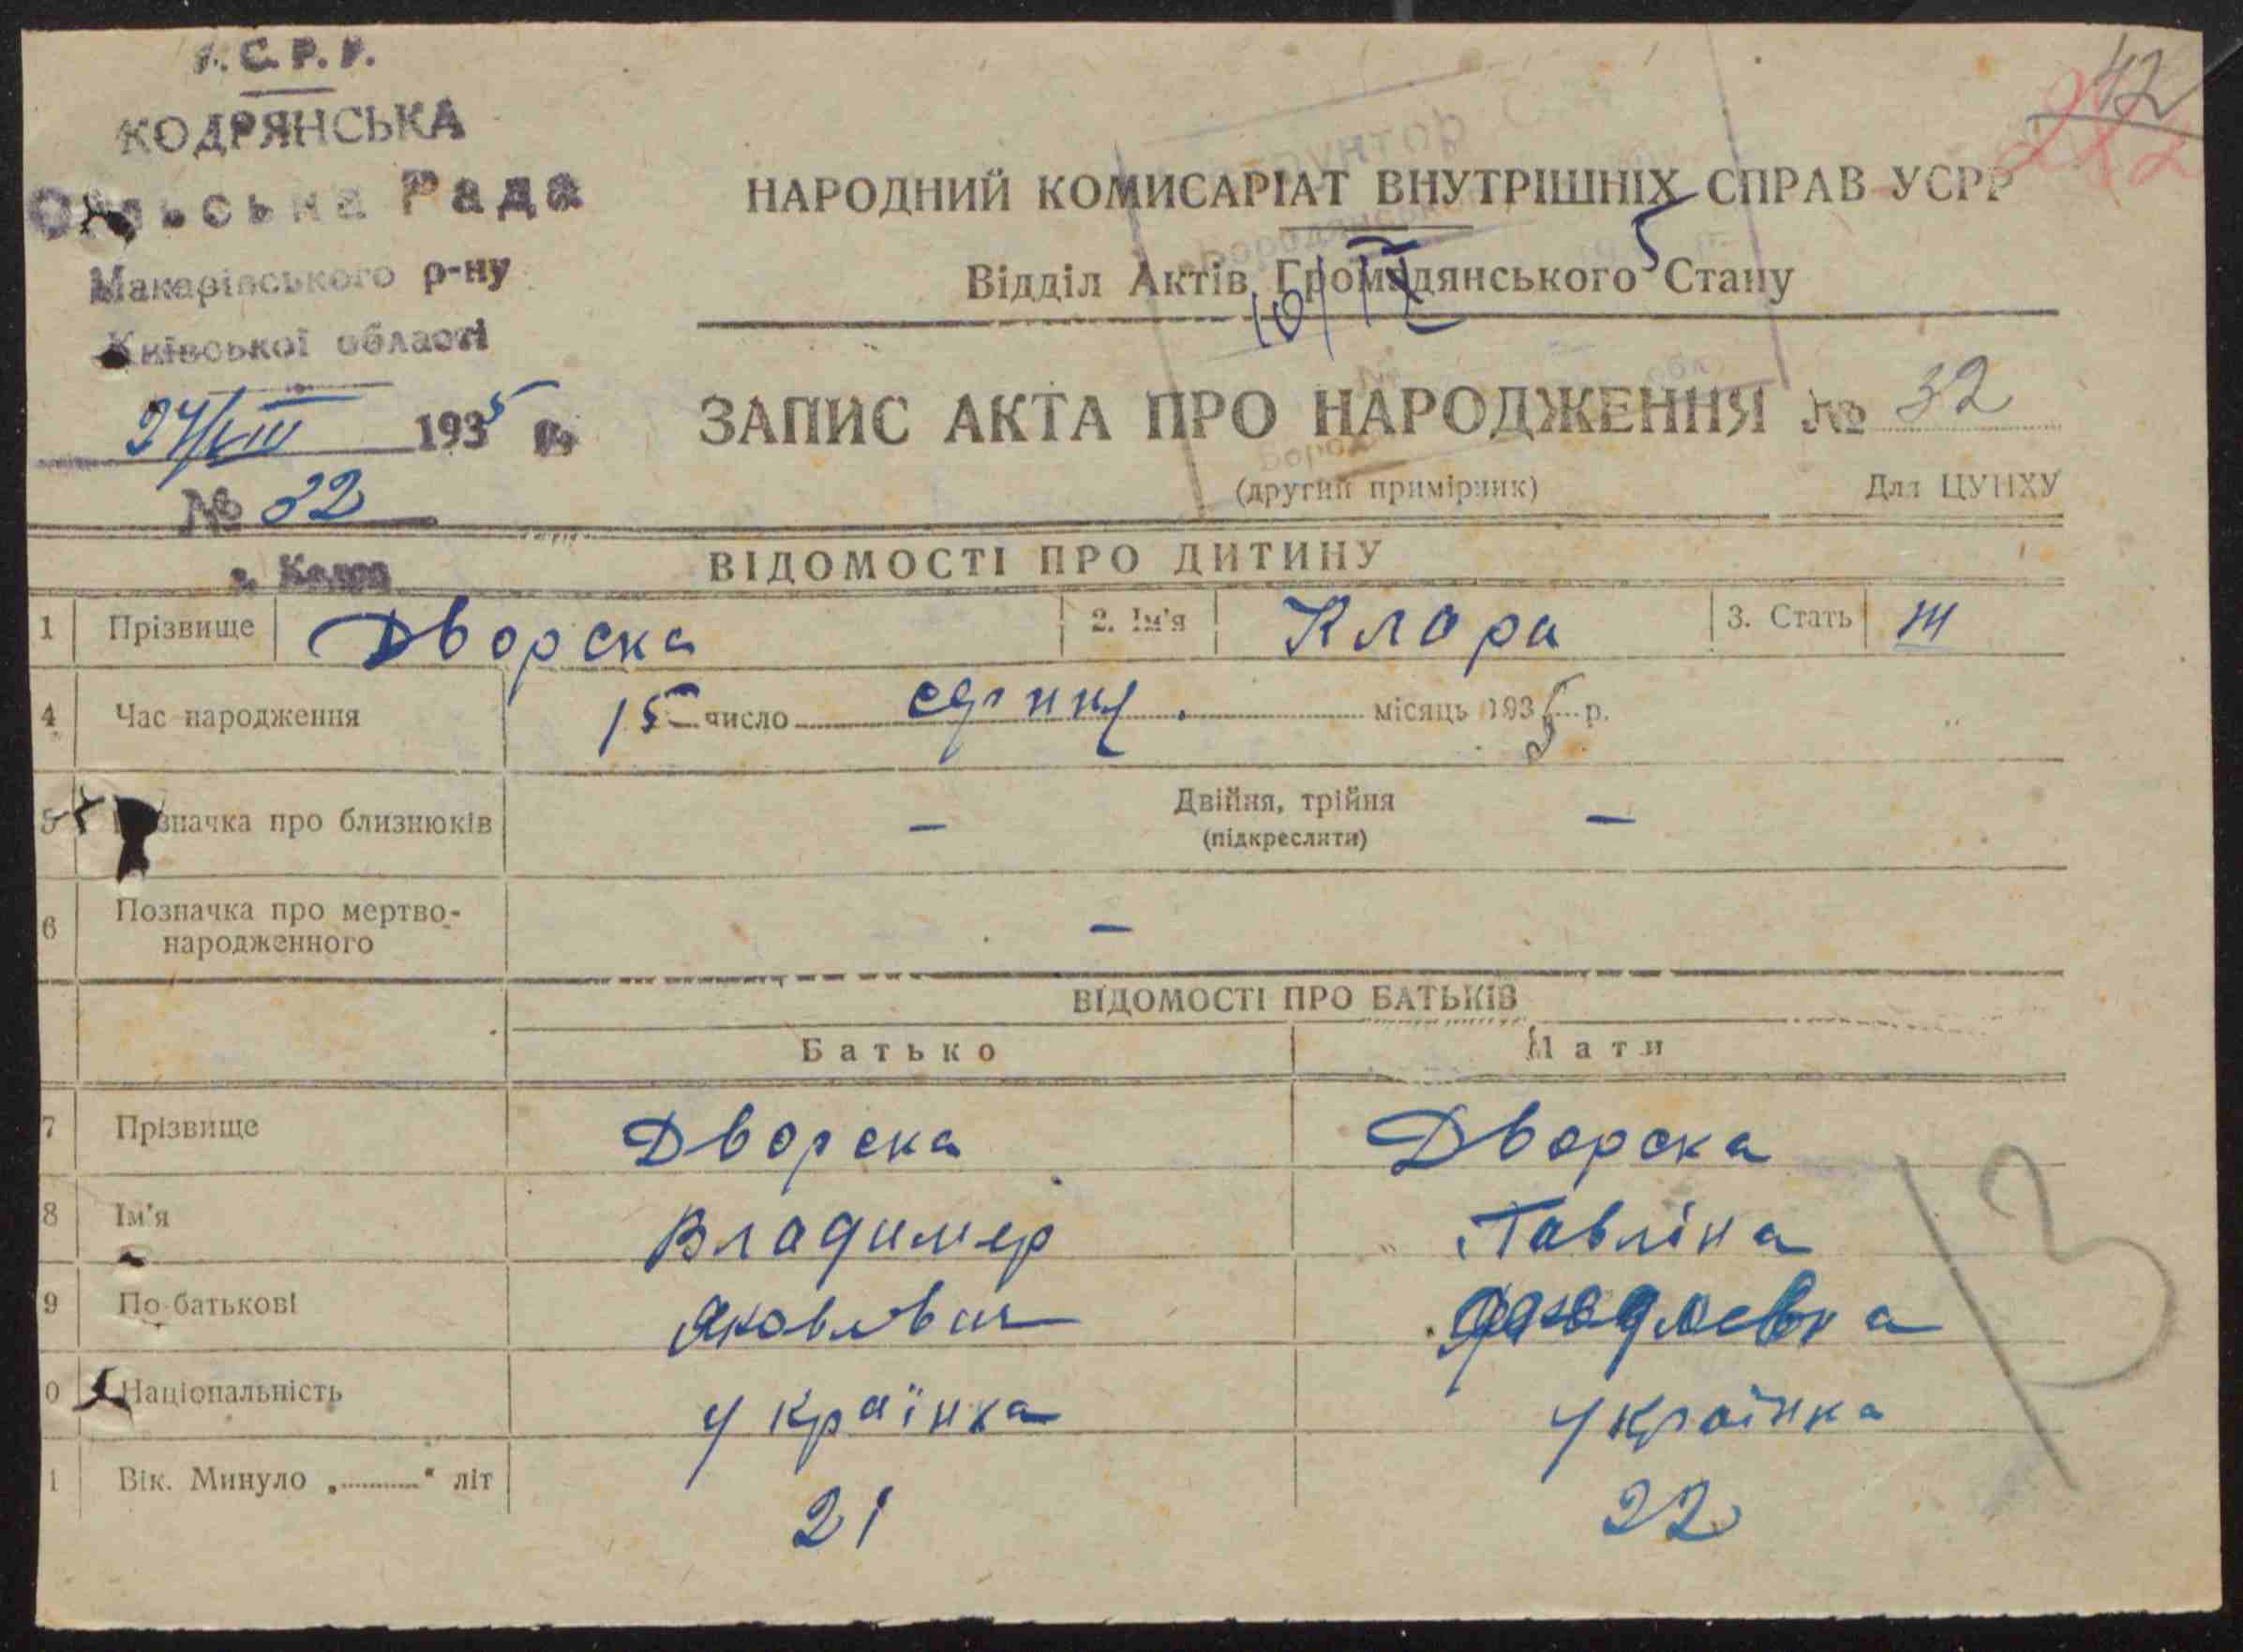 У.С.Р.Р.
КОДРЯНСЬКА
Сільська Рада
Макарівського р-ну
Київської області
24/VIII 1935 р.
№ 32
с. Кодра
42
222
НАРОДНИЙ КОМИСАРІАТ ВНУТРІШНІХ СПРАВ УСРР
Відділ Актів Громадянського Стану
10/IX 5
ЗАПИС АКТА ПРО НАРОДЖЕННЯ № 32
(другий примірник) Для ЦУНХУ
ВІДОМОСТІ ПРО ДИТИНУ
1 Прізвище Дворска 2. Ім'я Клара 3. Стать ж
4 Час народження 15 число серпня місяць 1935 р.
5 Позначка про близнюків – Двійня, трійня –
(підкреслити)
6 Позначка про мертво-
народженного –
ВІДОМОСТІ ПРО БАТЬКІВ
Батько Мати
7 Прізвище Дворска Дворска
8 Ім'я Владимер Павліна
9 По-батькові Яковлевич
0 Національність українка українка
1 Вік. Минуло „..........“ літ 21 22